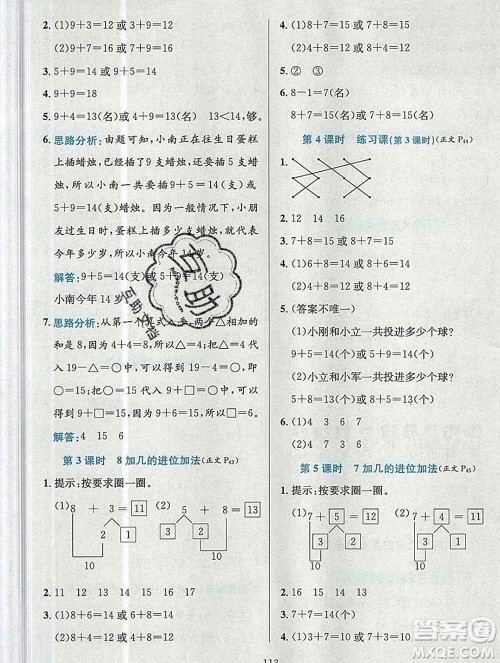 (1)9+3=12 或 3+9=12
(2)9+6=15 或 6+9=15
2. 5+9=14 或 9+5=14
4. 9+9=18
5. 9+4=13(名)或 4+9=13(名) 13<14,够。
6. 思路分析:由题可知,小南在往生日蛋糕
上插蜡烛,已经插了 9 支蜡烛,还剩 5 支蜡
烛,所以小南一共要插 9+5=14(支)或
5+9=14(支)蜡烛。因为一般情况下,小朋
友过生日,蛋糕上插多少支蜡烛,就代表
今年多少岁,所以小南今年 14 岁。
解答:9+5=14(支)或 5+9=14(支)
小南今年 14
7. 思路分析:从第一个
和是 8,所以△=4,把△=4 代入
19-△=○可以得到 19-4=○,可以知
道,○=15,把○=15 代入 9+□=○可以
得到 9+□=15,可以得到□=6。
解答:4 15 6
第 3 课时 8 加几的进位加法(正文 P43)
1. 提示:按要求圈一圈。
(1) 8 + 3 = 11
2 1
10
(2) 5 + 8 = 13
3 2
10
2. 11 12 13 14 15 16 17
3. (1)8+6=14 或 6+8=14
(2)8+4=12 或 4+8=12
4. (1)8+7=15 或 7+8=15
(2)9+8=17 或 8+9=17
5. ② ③
6. 8-1=7(名)
8+7=15(名)或 7+8=15(名)
第 4 课时 练习课(第 3 课时)(正文 P44)
1.
2. 12 14 16
5. (答案不唯一)
(1)小刚和小立一共投进多少个球?
9+5=14(个)或 5+9=14(个)
(2)小立和小军一共投进多少个球?
5+8=13(个)或 8+5=13(个)
第 5 课时 7 加几的进位加法(正文 P45)
1. 提示:按要求圈一圈。
(1) 7 + 5 = 12
3 2
10
(2) 7 + 4 = 11
3 1
10
2. 16 15 14 13 12 11
3. (1)7+3=10 或 3+7=10
(2)7+6=13 或 6+7=13
互助
互助文档
答案圈
MXQE.COM
113